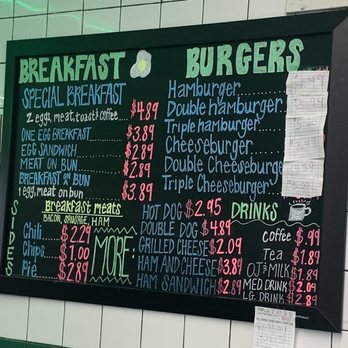 BREAKFAST
SPECIAL BREAKFAST
2 eggs, meat, toast & coffee.... $4.89
ONE EGG BREAKFAST $3.89
EGG SANDWICH $2.89
MEAT ON BUN $2.89
BREAKFAST ON BUN
1 egg, meat on bun $3.89
SIDES
Breakfast meats
BACON, SAUSAGE, HAM
Chili $2.29
Chips $1.00
Pie $2.89
MORE:
BURGERS
Hamburger
Double hamburger
Triple hamburger
Cheeseburger
Double Cheeseburger
Triple Cheeseburger
HOT DOG $2.95
DOUBLE DOG $4.89
GRILLED CHEESE $2.09
HAM AND CHEESE $3.89
HAM SANDWICH $2.89
DRINKS
coffee $.99
Tea $1.89
OJ & MILK $1.89
MED. DRINK $2.09
LG. DRINK $2.89